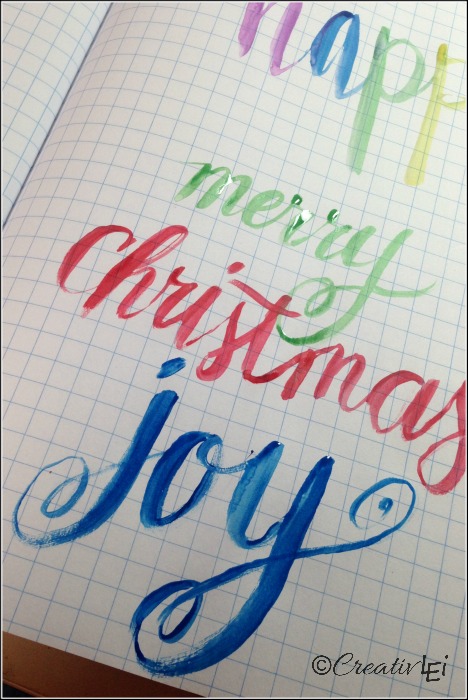 happ
merry
christmas
joy
©CreativLEi